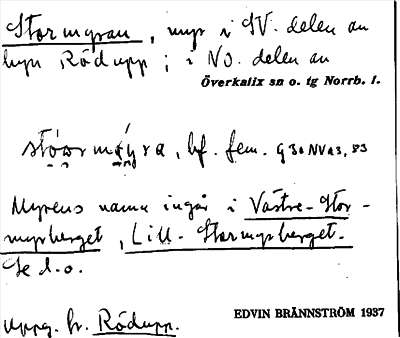 Stormyran, myr i SV. delen av
byn Rödupp; i NO. delen av
Överkalix sn o. tg Norrb. l.
stó̀ormýra, bf. fem. G 30 NV a3, 83
Myrens namn ingår i Västre-Stor-
myrberget, Lill-Stormyrberget.
Se d.o.
Uppg. fr. Rödupp.
EDVIN BRÄNNSTRÖM 1937